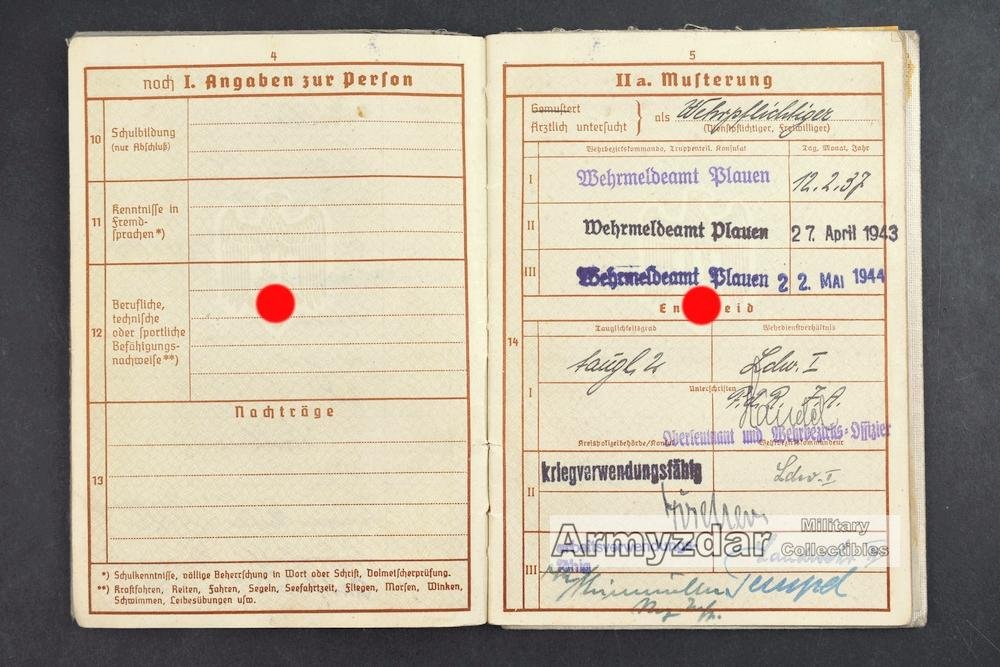 4
noch I. Angaben zur Person
10
Schulbildung
(nur Abschluß)
11
Kenntnisse in
Fremd-
sprachen*)
12
Berufliche,
technische
oder sportliche
Befähigungs-
nachweise**)
Nachträge
13
*) Schulkenntnisse, völlige Beherrschung in Wort oder Schrift, Dolmetscherprüfung.
**) Kraftfahren, Reiten, Fahren, Segeln, Seefahrtzeit, Fliegen, Morsen, Winken,
Schwimmen, Leibesübungen usw.
5
IIa. Musterung
Gemustert
Ärztlich untersucht
als Wehrpflichtiger
(Dienstpflichtiger, Freiwilliger)
Wehrbezirkskommando, Truppenteil, Konsulat
Tag, Monat, Jahr
I Wehrmeldeamt Plauen 12.2.37
II Wehrmeldeamt Plauen 27. April 1943
III Wehrmeldeamt Plauen 22. MAI 1944
En eid
14
Tauglichkeitsgrad
Wehrdienstverhältnis
taugl. 2 Ldw. I
I
Unterschriften
Oberleutnant und Wehrbezirks-Offizier
Kreispolizeibehörde/
kriegverwendungsfähig Ldw. I
II
Armyzdar
Military
Collectibles
III
Tempel